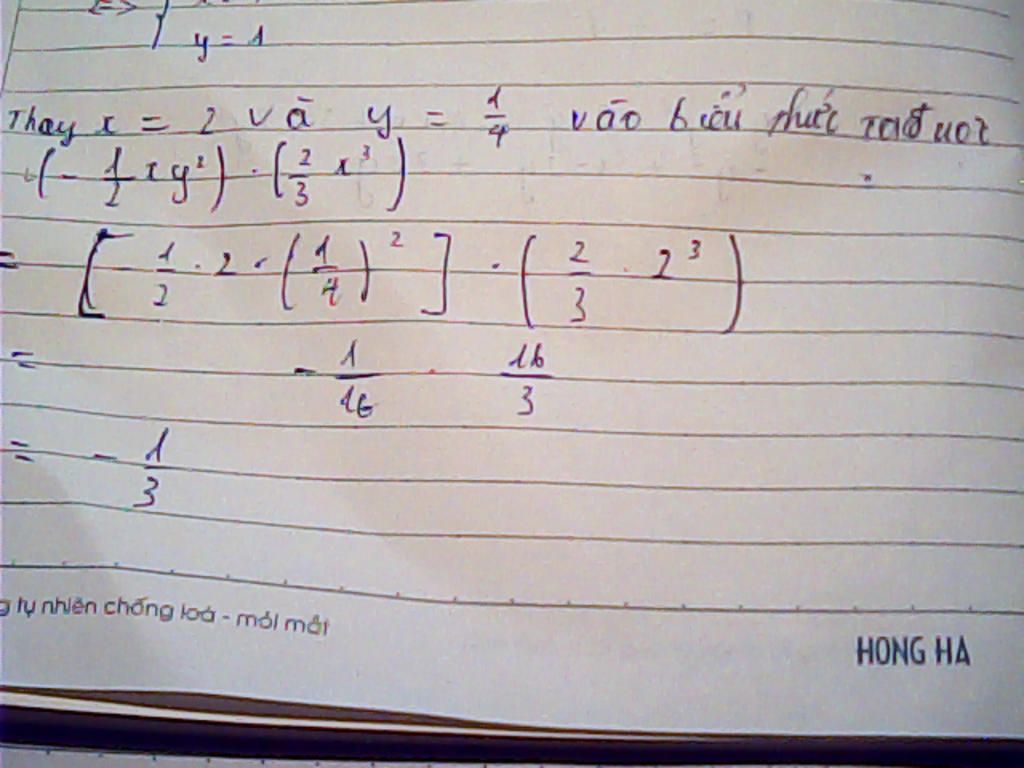 <=> {
y = 1
Thay x = 2 và y = 1/4 vào biểu thức ta đuơc
(- 1/2 xy²) · (2/3 x³)
= [- 1/2 · 2 · (1/4)²] · (2/3 · 2³)
= - 1/16 · 16/3
= - 1/3
tự nhiên chống loá - mỏi mắt
HONG HA